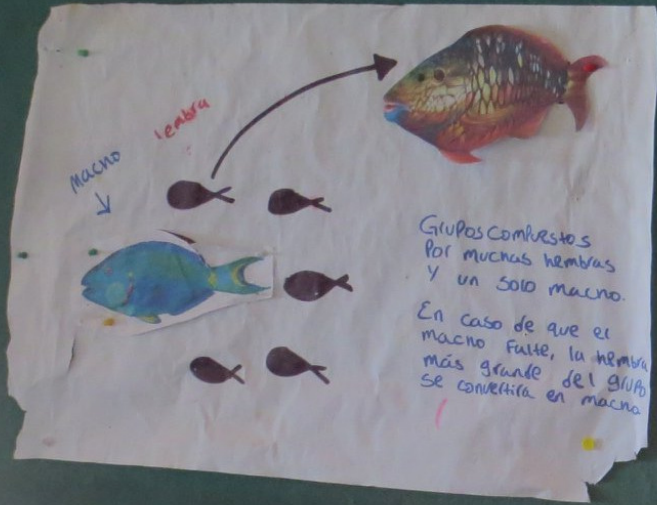 lembra
macho
Grupos compuestos
por muchas hembras
y un solo macho.
En caso de que el
macho falte, la hembra
más grande del grupo
se convertira en macho